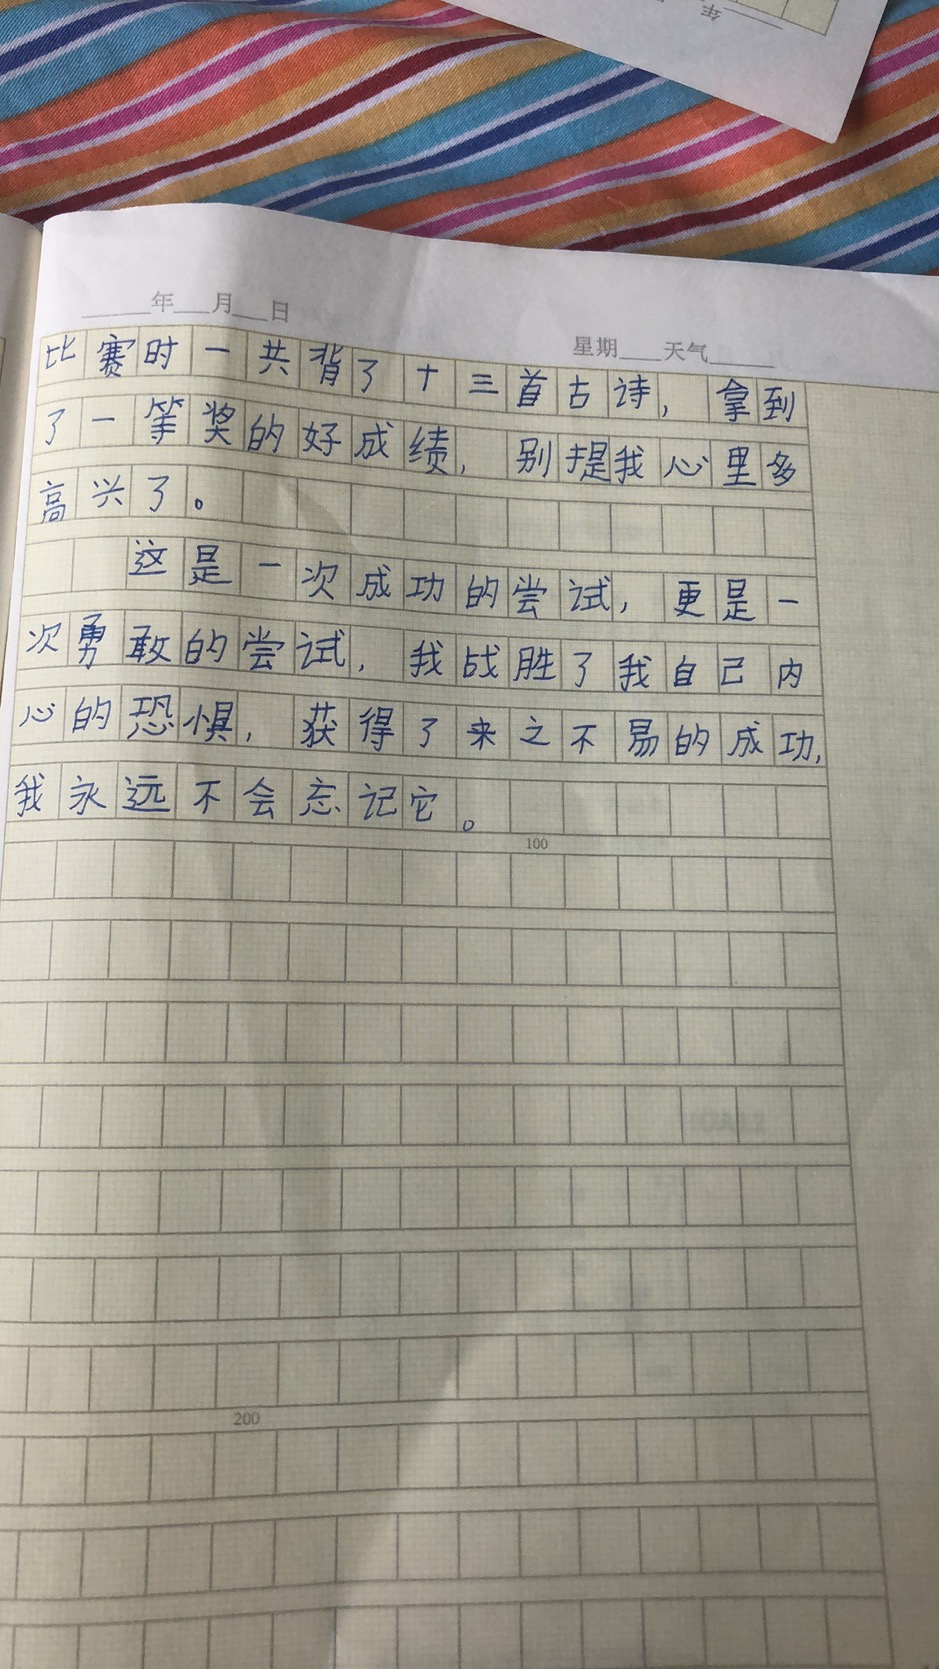 年
年 月 日
星期 天气
比赛时一共背了十三首古诗，拿到
了一等奖的好成绩，别提我心里多
高兴了。
这是一次成功的尝试，更是一
次勇敢的尝试，我战胜了我自己内
心的恐惧，获得了来之不易的成功，
我永远不会忘记它。
100
200